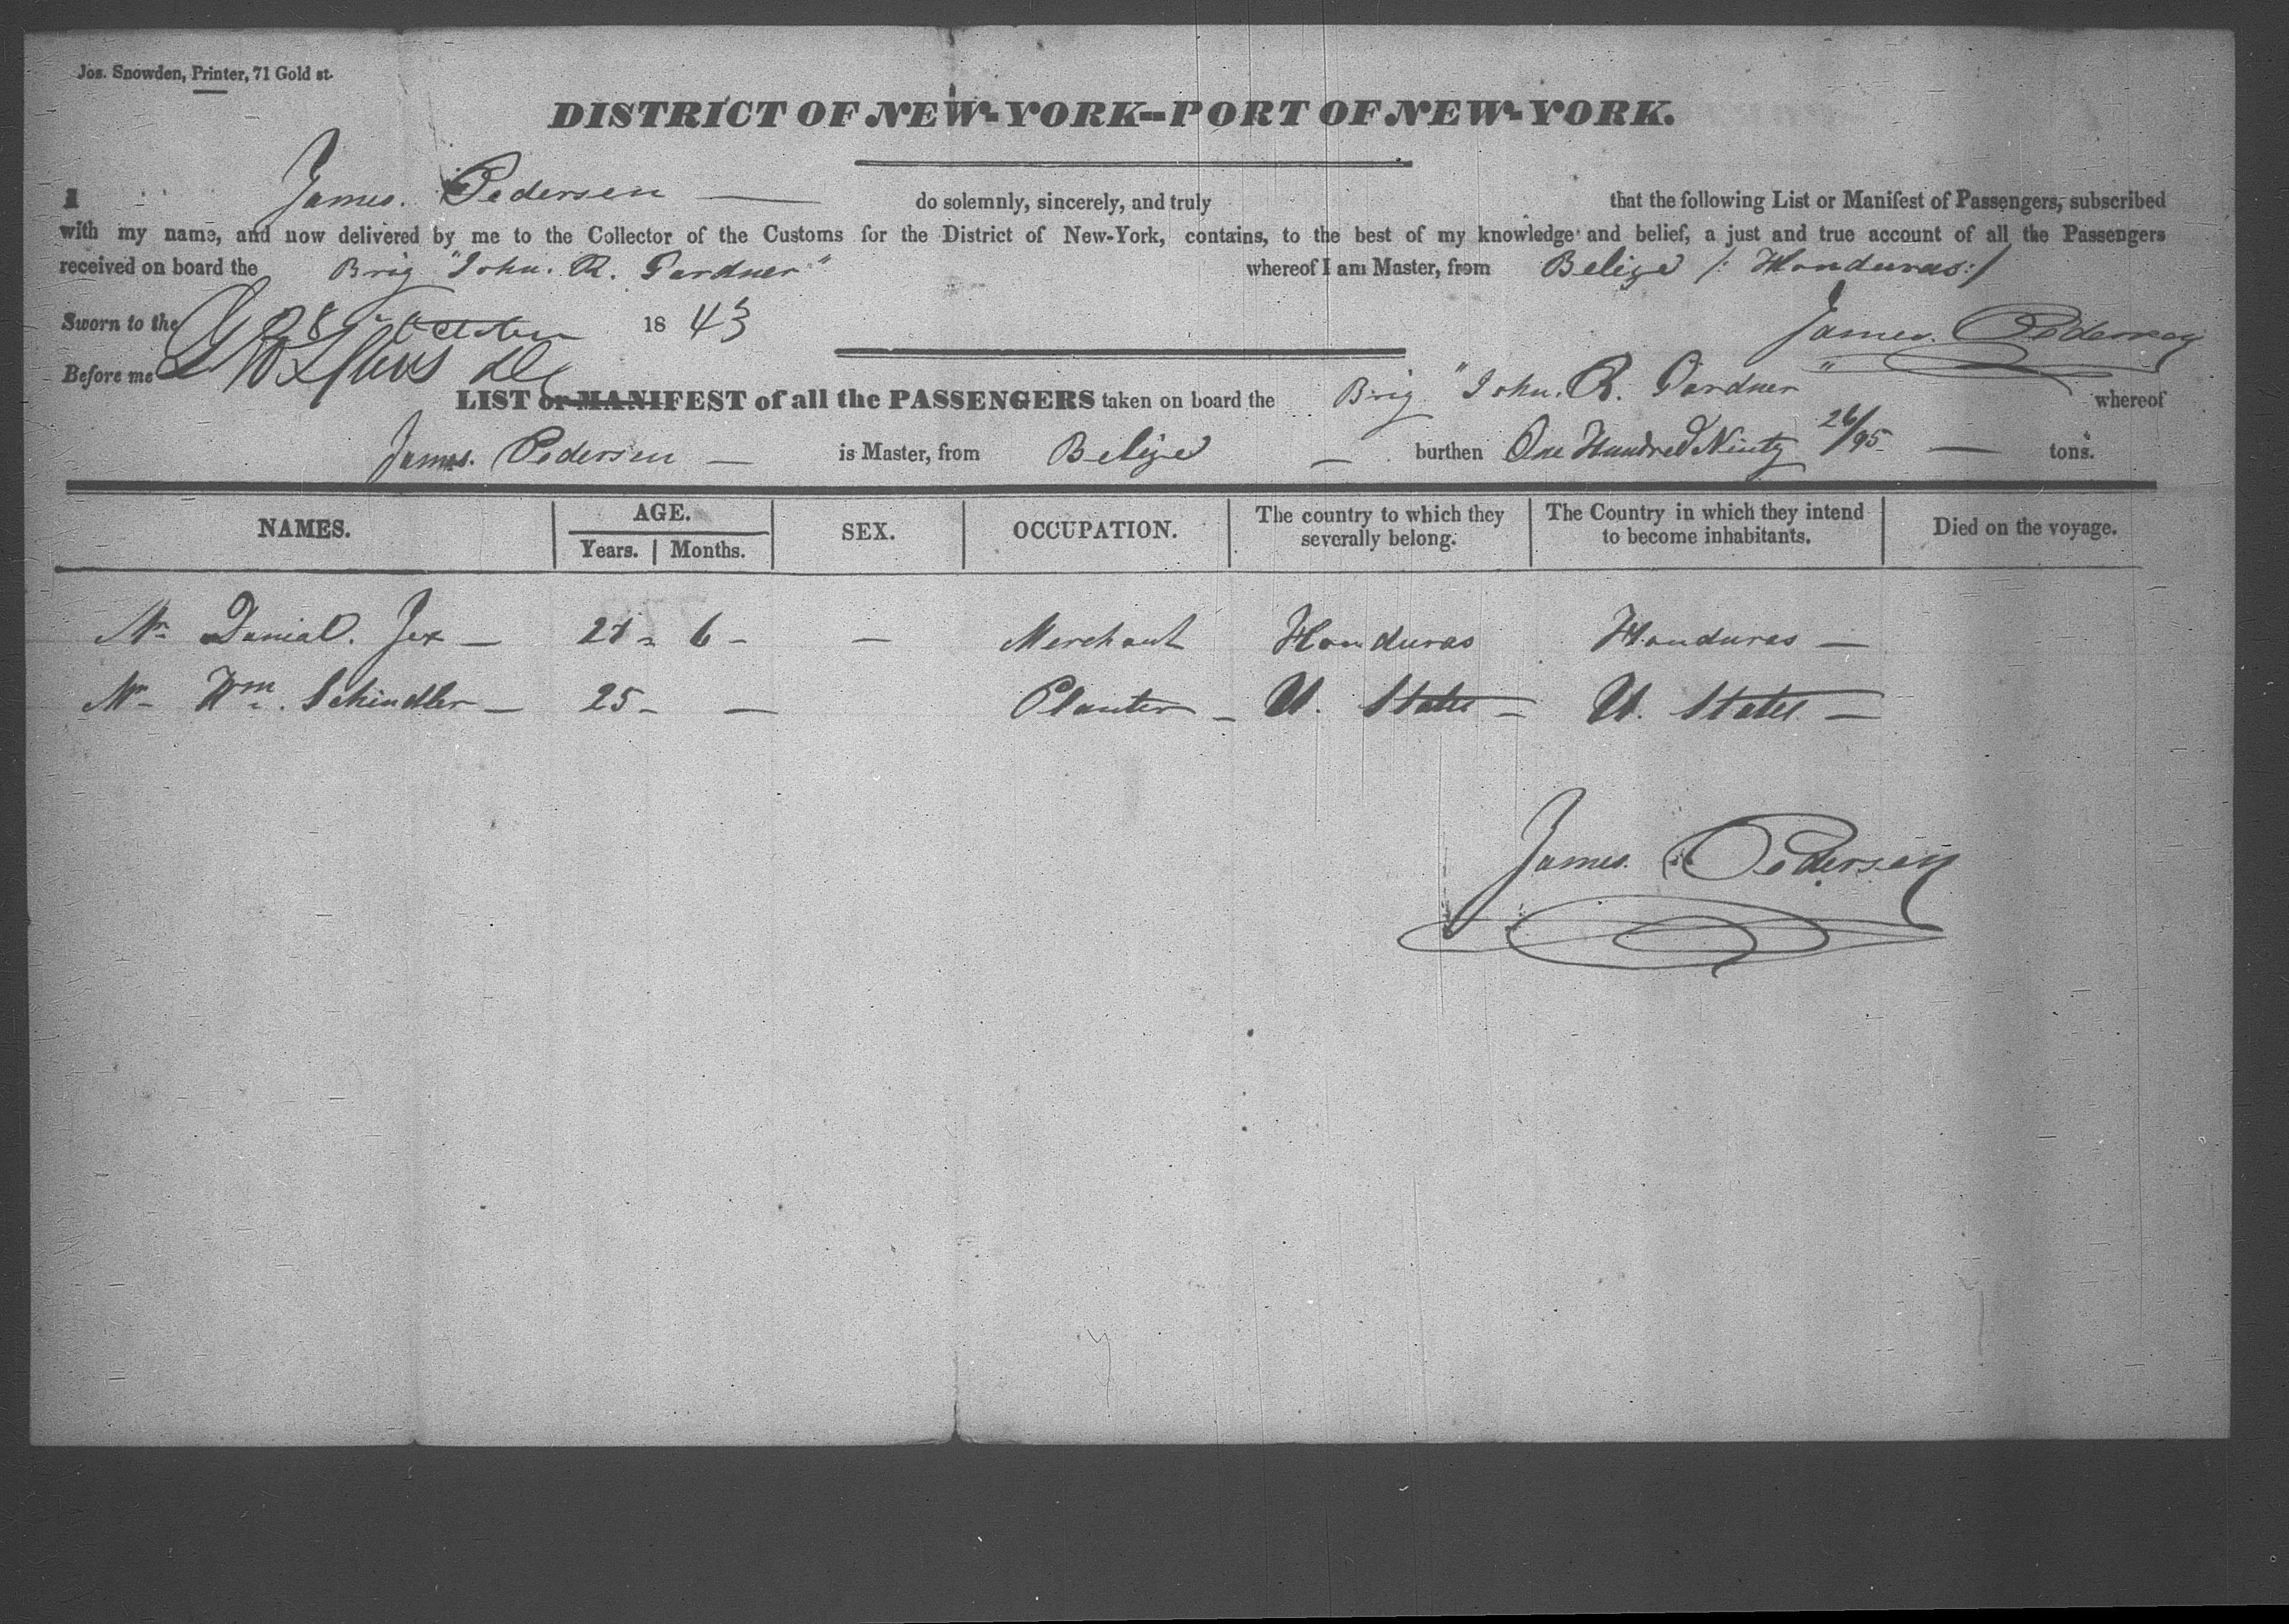 Jos. Snowden, Printer, 71 Gold st.
DISTRICT OF NEW-YORK--PORT OF NEW-YORK.
I James. Pedersen — do solemnly, sincerely, and truly that the following List or Manifest of Passengers, subscribed
with my name, and now delivered by me to the Collector of the Customs for the District of New-York, contains, to the best of my knowledge and belief, a just and true account of all the Passengers
received on board the Brig "John. R. Gardner" whereof I am Master, from Belize /: Honduras:/
Sworn to the 28 October 1843 James. Pedersen
Before me
LIST or MANIFEST of all the PASSENGERS taken on board the Brig "John. R. Gardner" whereof
James. Pedersen — is Master, from Belize — burthen One Hundred Ninty 26/95 — tons.
NAMES. AGE. SEX. OCCUPATION. The country to which they severally belong. The Country in which they intend to become inhabitants. Died on the voyage.
Years. Months.
Mr Danial. Jex — 27 - 6 - — Merchant Honduras Honduras —
Mr Wm. Schindler — 25 - — Planter - U. States - U. States —
James. Pedersen